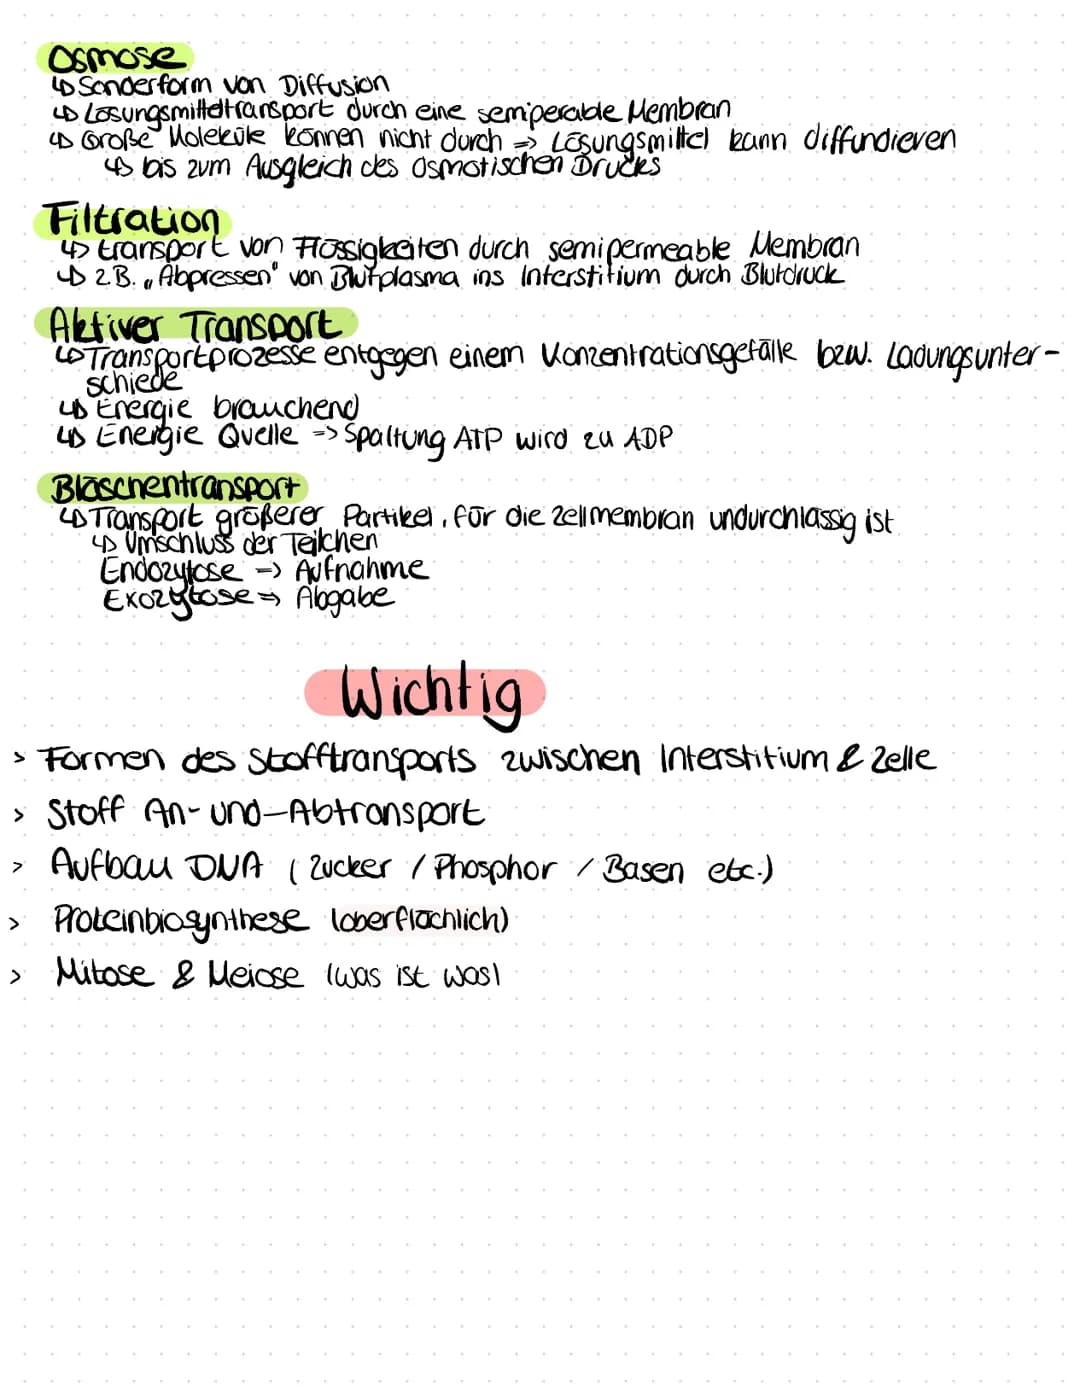 Osmose
↳ Sonderform von Diffusion
↳ Lösungsmitteltransport durch eine semiperable Membran
↳ Große Moleküle können nicht durch => Lösungsmittel kann diffundieren
↳ bis zum Ausgleich des Osmotischen Drucks
Filtration
↳ transport von Flüssigkeiten durch semipermeable Membran
↳ z.B. „Abpressen" von Blutplasma ins Interstitium durch Blutdruck
Aktiver Transport
↳ Transportprozesse entgegen einem Konzentrationsgefälle bzw. Ladungsunter-
schiede
↳ Energie brauchend
↳ Energie Quelle => Spaltung ATP wird zu ADP
Bläschentransport
↳ Transport größerer Partikel, für die Zellmembran undurchlässig ist
↳ Umschluss der Teilchen
Endozytose => Aufnahme
Exozytose => Abgabe
Wichtig
> Formen des Stofftransports zwischen Interstitium & Zelle
> Stoff An- und-Abtransport
> Aufbau DNA (Zucker / Phosphor / Basen etc.)
> Proteinbiosynthese (oberflächlich)
> Mitose & Meiose (was ist was)